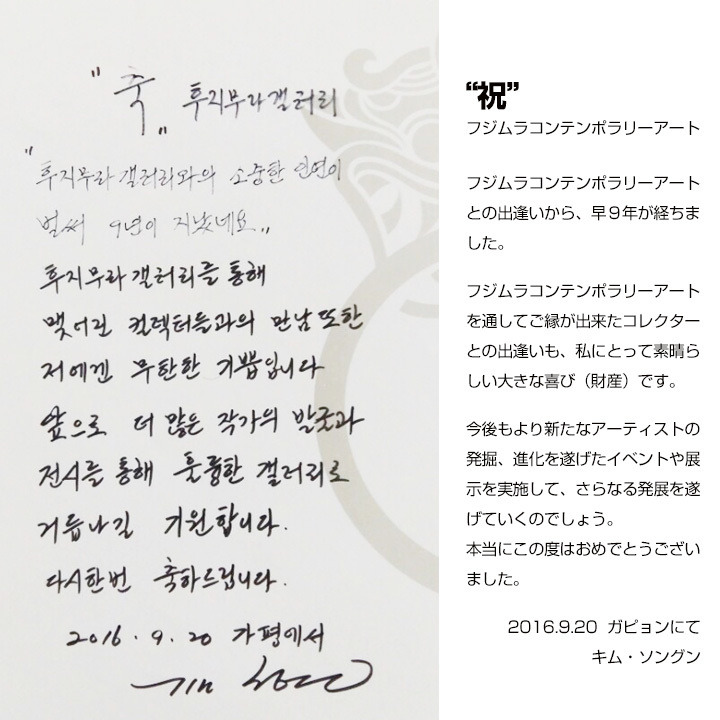 "축" 후지무라갤러리
"후지무라갤러리와의 소중한 인연이
벌써 9년이 지났네요"
후지무라갤러리를 통해
맺어진 컬렉터들과의 만남 또한
저에겐 무한한 기쁨입니다
앞으로 더 많은 작가의 발굴과
전시를 통해 훌륭한 갤러리로
거듭나길 기원합니다.
다시한번 축하드립니다.
2016.9.20 가평에서
“祝”
フジムラコンテンポラリーアート
フジムラコンテンポラリーアート
との出逢いから、早９年が経ちま
した。
フジムラコンテンポラリーアート
を通してご縁が出来たコレクター
との出逢いも、私にとって素晴ら
しい大きな喜び（財産）です。
今後もより新たなアーティストの
発掘、進化を遂げたイベントや展
示を実施して、さらなる発展を遂
げていくのでしょう。
本当にこの度はおめでとうござい
ました。
2016.9.20 ガピョンにて
キム・ソングン